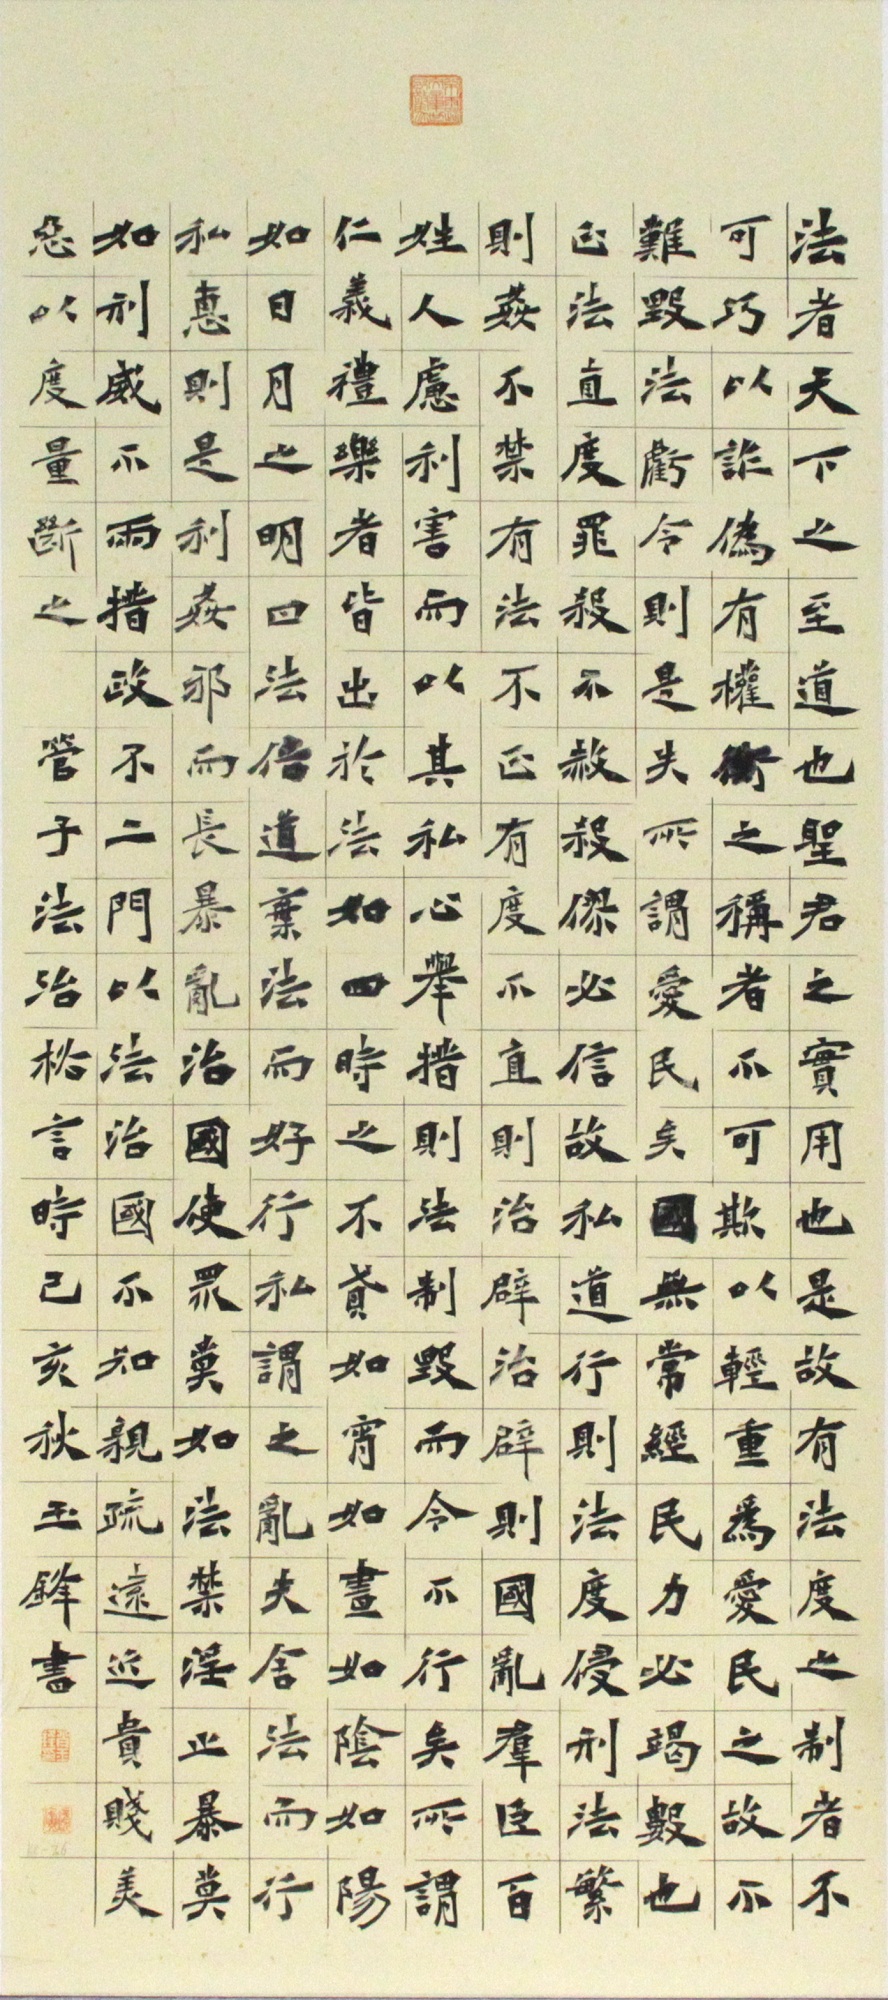 法者天下之至道也聖君之實用也是故有法度之制者不
可巧以詐偽有權衡之稱者不可欺以輕重爲愛民之故不
難毀法虧令則是失所謂愛民矣國無常經民力必竭數也
正法直度罪殺不赦殺僇必信故私道行則法度侵刑法繁
則姦不禁有法不正有度不直則治辟治辟則國亂羣臣百
姓人慮利害而以其私心舉措則法制毀而令不行矣所謂
仁義禮樂者皆出於法如四時之不貣如宵如晝如陰如陽
如日月之明曰法倍道棄法而好行私謂之亂夫舍法而行
私惠則是利姦邪而長暴亂治國使眾莫如法禁淫止暴莫
如刑威不兩措政不二門以法治國不知親疏遠近貴賤美
惡以度量斷之 管子法治 言時己亥秋玉鋒書